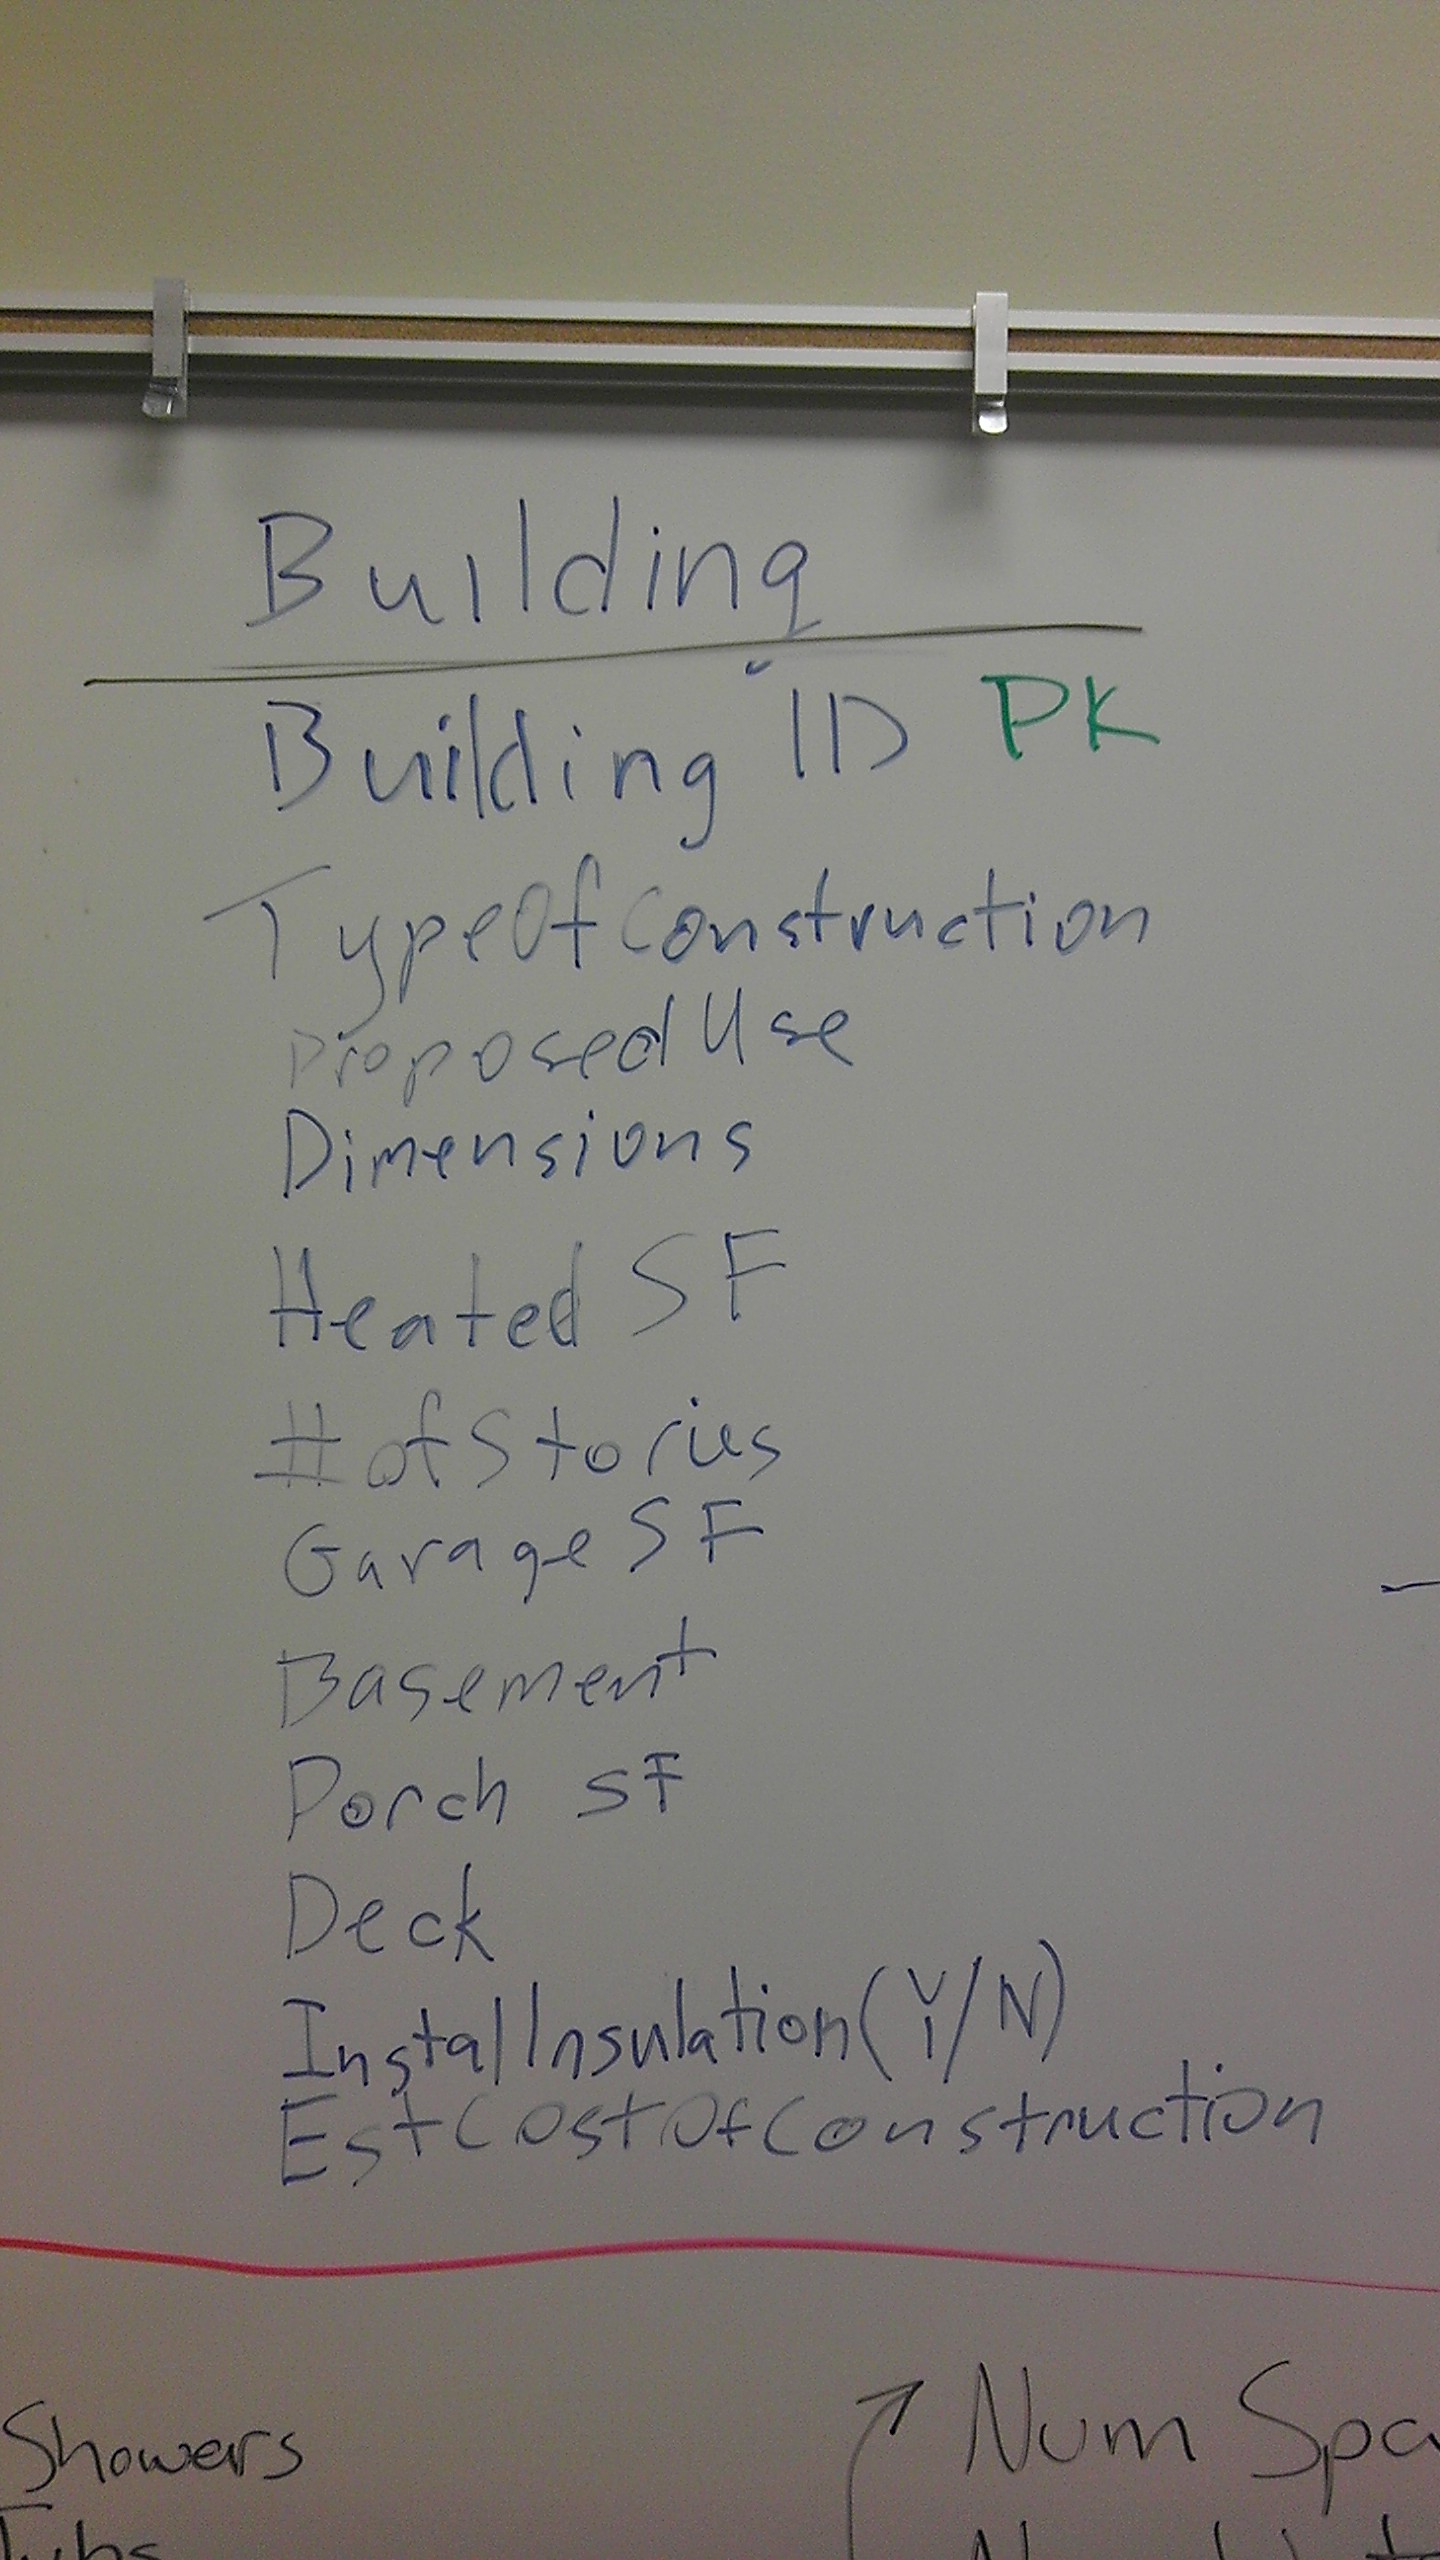 Building
Building ID PK
TypeOfConstruction
ProposedUse
Dimensions
Heated SF
# of Stories
Garage SF
Basement
Porch SF
Deck
InstallInsulation (Y/N)
EstCostOfConstruction
Showers
Num Spa
Tubs